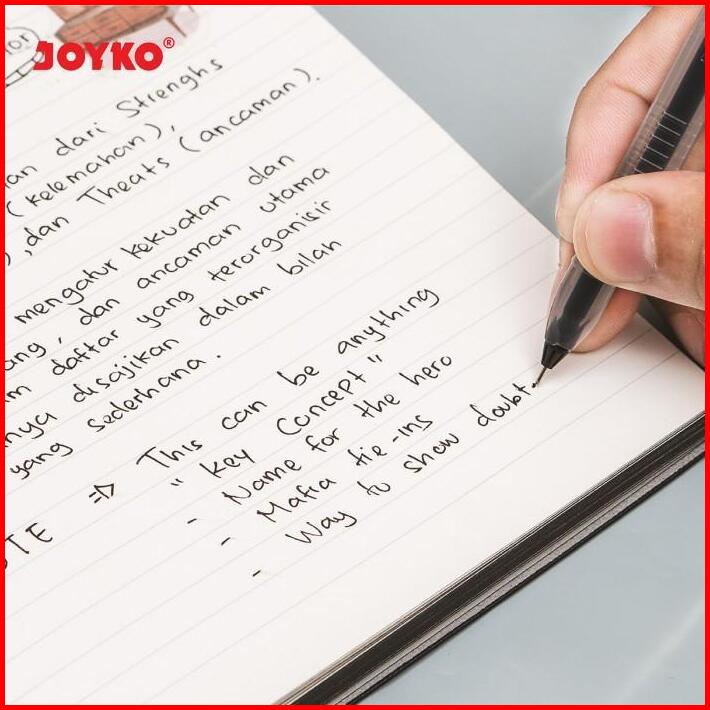 JOYKO®
dari Strenghs
(kelemahan),
, dan Theats (ancaman).
mengatur kekuatan dan
, dan ancaman utama
daftar yang terorganisir
disajikan dalam bilah
yang sederhana.
⇒ This can be anything
"key concept"
- Name for the hero
- Mafia tie-ins
- Way to show doubt.